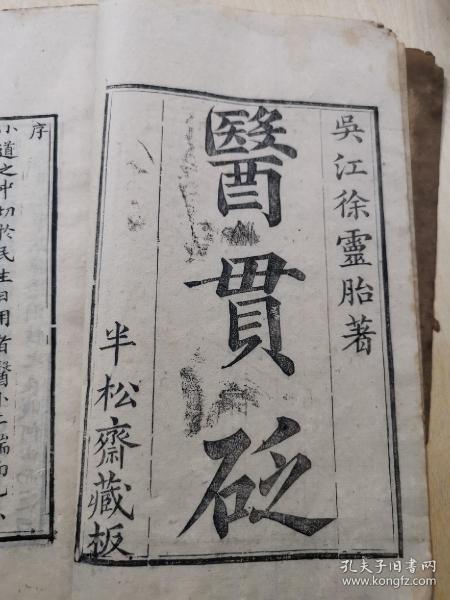 吳江徐靈胎著
醫貫砭
半松齋藏板
序
小道之中切於民生日用者醫卜二端而已
孔夫子旧书网
www.kongfz.com